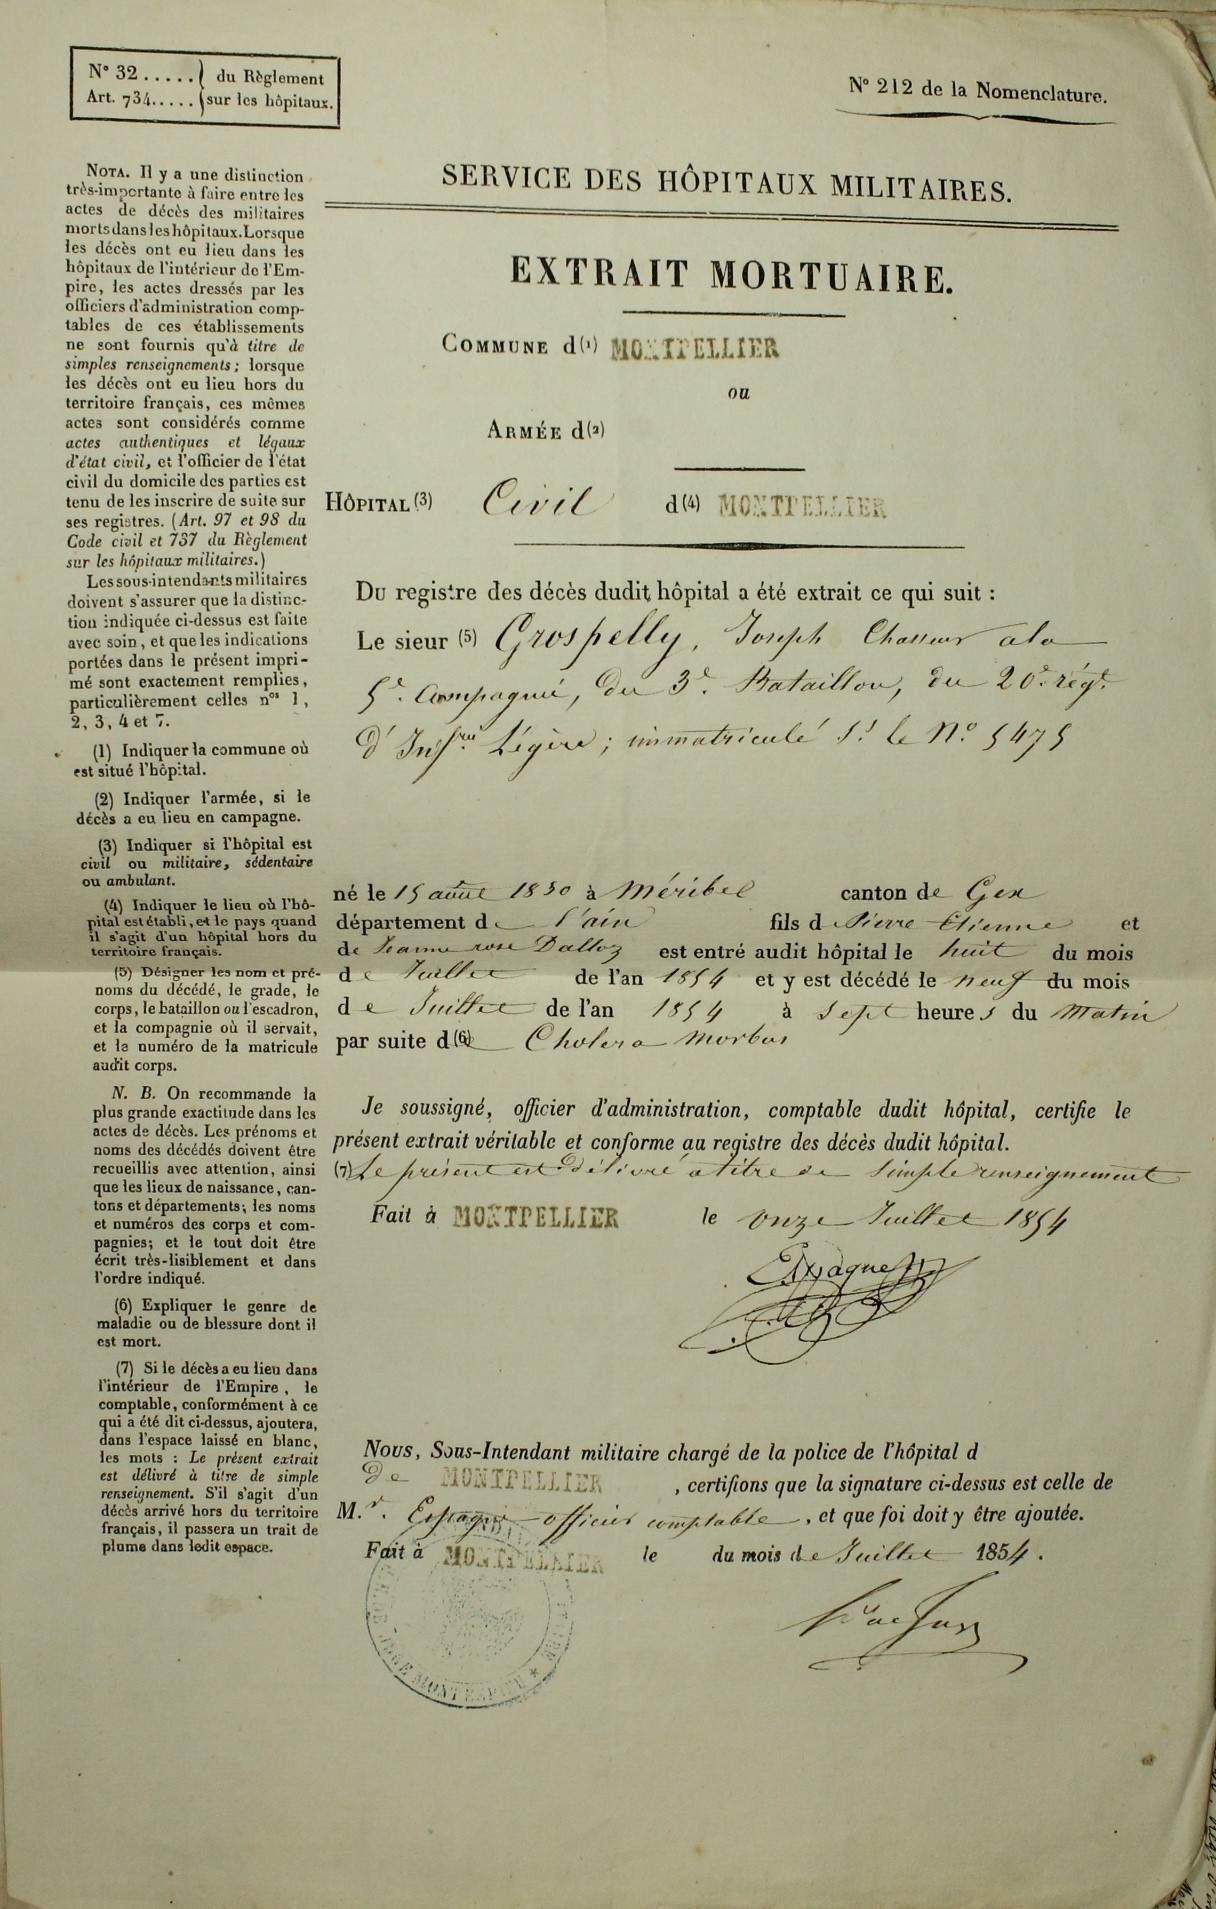 N° 32 ..... du Règlement
Art. 734..... sur les hôpitaux.
N° 212 de la Nomenclature.
NOTA. Il y a une distinction
très-importante à faire entre les
actes de décès des militaires
morts dans les hôpitaux. Lorsque
les décès ont eu lieu dans les
hôpitaux de l'intérieur de l'Em-
pire, les actes dressés par les
officiers d'administration comp-
tables de ces établissements
ne sont fournis qu'à titre de
simples renseignements; lorsque
les décès ont eu lieu hors du
territoire français, ces mêmes
actes sont considérés comme
actes authentiques et légaux
d'état civil, et l'officier de l'état
civil du domicile des parties est
tenu de les inscrire de suite sur
ses registres. (Art. 97 et 98 du
Code civil et 737 du Règlement
sur les hôpitaux militaires.)
Les sous-intendants militaires
doivent s'assurer que la distinc-
tion indiquée ci-dessus est faite
avec soin, et que les indications
portées dans le présent impri-
mé sont exactement remplies,
particulièrement celles nos 1,
2, 3, 4 et 7.
(1) Indiquer la commune où
est situé l'hôpital.
(2) Indiquer l'armée, si le
décès a eu lieu en campagne.
(3) Indiquer si l'hôpital est
civil ou militaire, sédentaire
ou ambulant.
(4) Indiquer le lieu où l'hô-
pital est établi, et le pays quand
il s'agit d'un hôpital hors du
territoire français.
(5) Désigner les nom et pré-
noms du décédé, le grade, le
corps, le bataillon ou l'escadron,
et la compagnie où il servait,
et le numéro de la matricule
audit corps.
N. B. On recommande la
plus grande exactitude dans les
actes de décès. Les prénoms et
noms des décédés doivent être
recueillis avec attention, ainsi
que les lieux de naissance, can-
tons et départements; les noms
et numéros des corps et com-
pagnies; et le tout doit être
écrit très-lisiblement et dans
l'ordre indiqué.
(6) Expliquer le genre de
maladie ou de blessure dont il
est mort.
(7) Si le décès a eu lieu dans
l'intérieur de l'Empire, le
comptable, conformément à ce
qui a été dit ci-dessus, ajoutera,
dans l'espace laissé en blanc,
les mots : Le présent extrait
est délivré à titre de simple
renseignement. S'il s'agit d'un
décès arrivé hors du territoire
français, il passera un trait de
plume dans ledit espace.
SERVICE DES HÔPITAUX MILITAIRES.
EXTRAIT MORTUAIRE.
COMMUNE d(1) MONTPELLIER
ou
ARMÉE d(2)
HÔPITAL (3) Civil d(4) MONTPELLIER
Du registre des décès dudit hôpital a été extrait ce qui suit :
Le sieur (5) Grospelly, Joseph Chasseur a la
5e. Compagnie, du 3e. Bataillon, du 20e. régt.
d'Infrie Légère; immatriculé s/ le No. 5475
né le 15 août 1830 à Méribel canton de Gex
département de l'ain fils de Pierre Etienne et
de Jeanne rose Dalloz est entré audit hôpital le huit du mois
de Juillet de l'an 1854 et y est décédé le neuf du mois
de Juillet de l'an 1854 à sept heures du matin
par suite d(6)e Cholera morbus
Je soussigné, officier d'administration, comptable dudit hôpital, certifie le
présent extrait véritable et conforme au registre des décès dudit hôpital.
(7) Le présent est délivré a titre de simple renseignement
Fait à MONTPELLIER le onze Juillet 1854
Espagne
Nous, Sous-Intendant militaire chargé de la police de l'hôpital d
De MONTPELLIER, certifions que la signature ci-dessus est celle de
M.r. Espagne officier comptable, et que foi doit y être ajoutée.
Fait à MONTPELLIER le du mois de Juillet 1854.